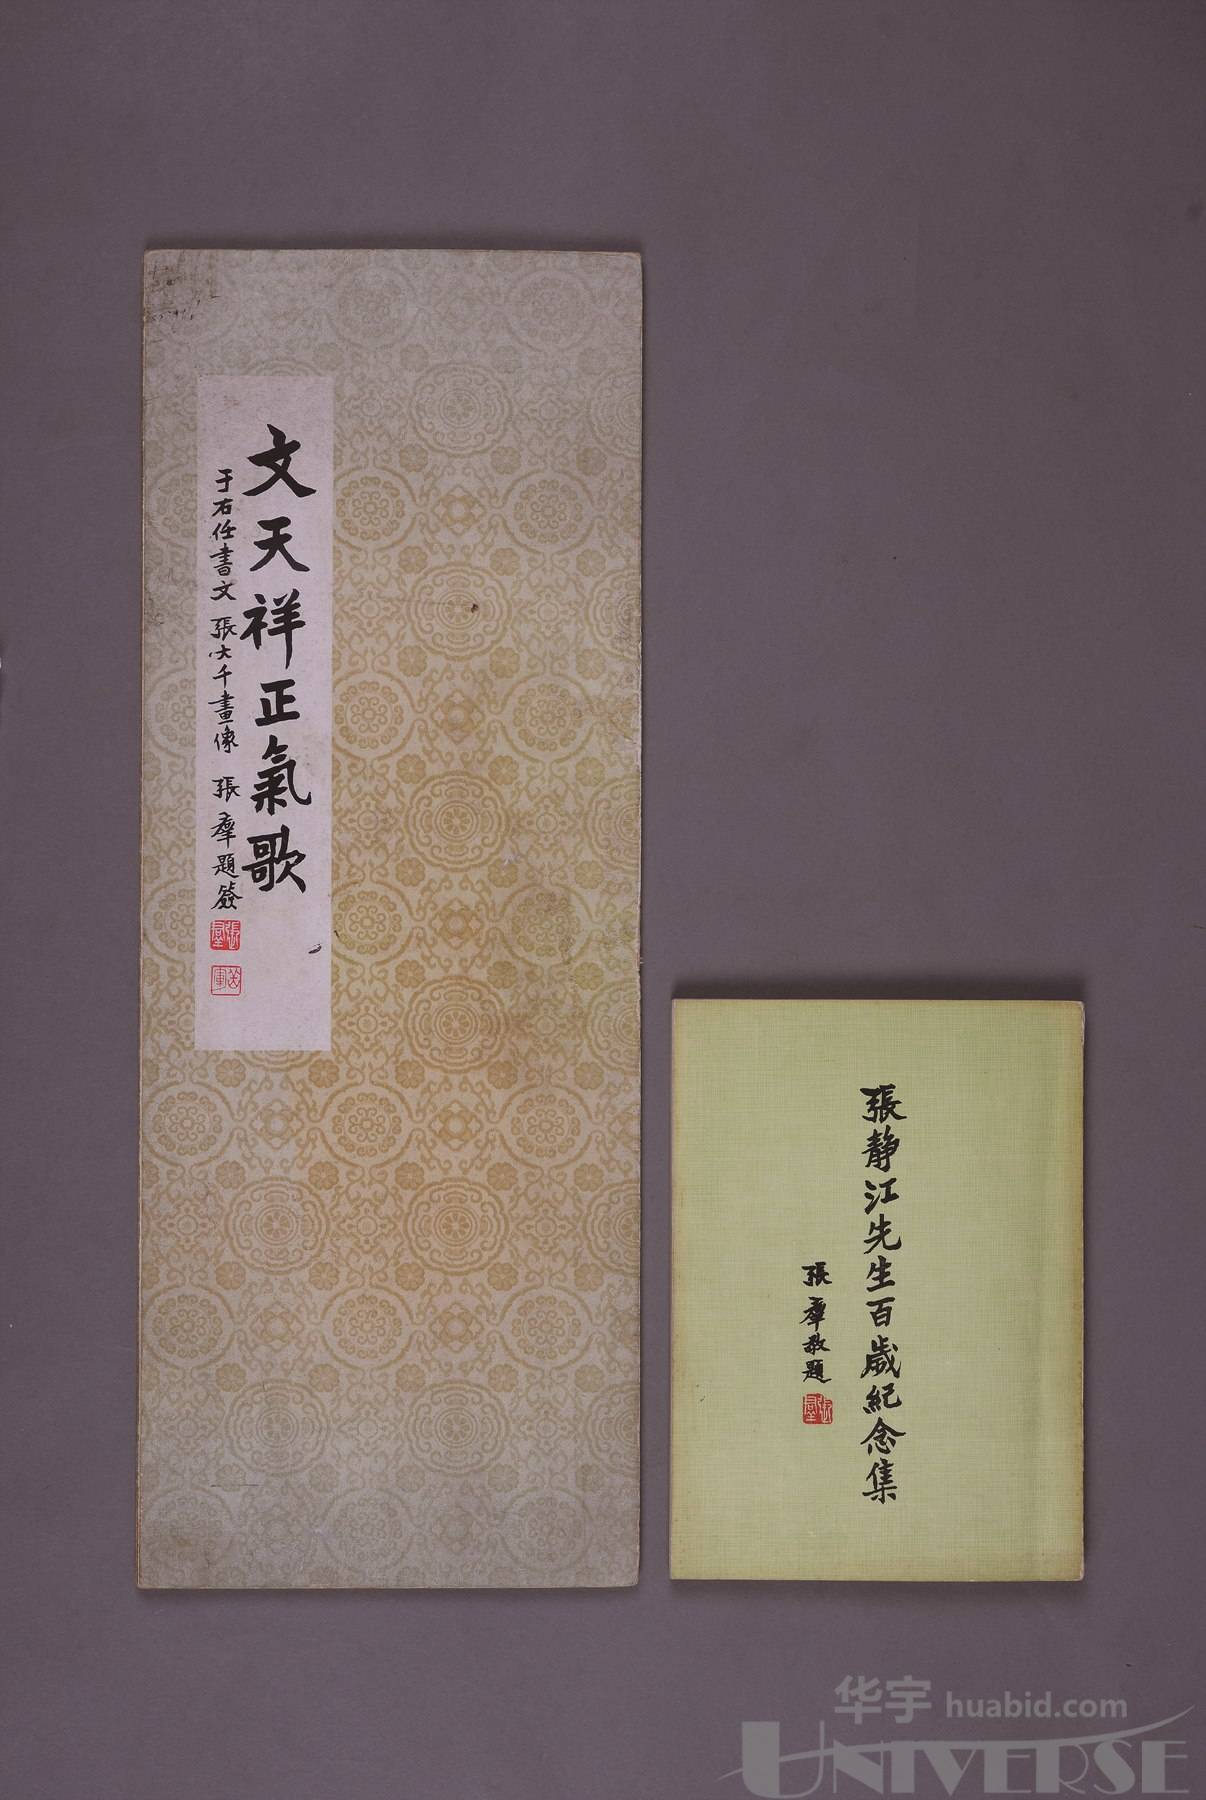 文天祥正氣歌
于右任書文 張大千畫像 張羣題簽
張羣
岳軍
張靜江先生百歲紀念集
張羣敬題
張羣
华宇 huabid.com
UNIVERSE